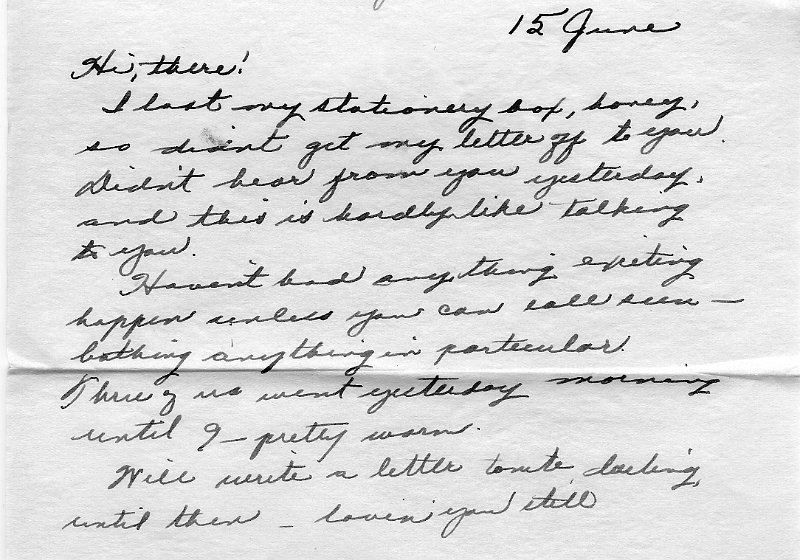 15 June
Hi, there!
I lost my stationery box, honey,
so didn't get my letter off to you.
Didn't hear from you yesterday,
and this is hardly like talking
to you.
Haven't had anything exciting
happen unless you can call sun-
bathing anything in particular.
Three of us went yesterday morning
until 9 - pretty warm.
Will write a letter tonite darling,
until then - lovin' you still